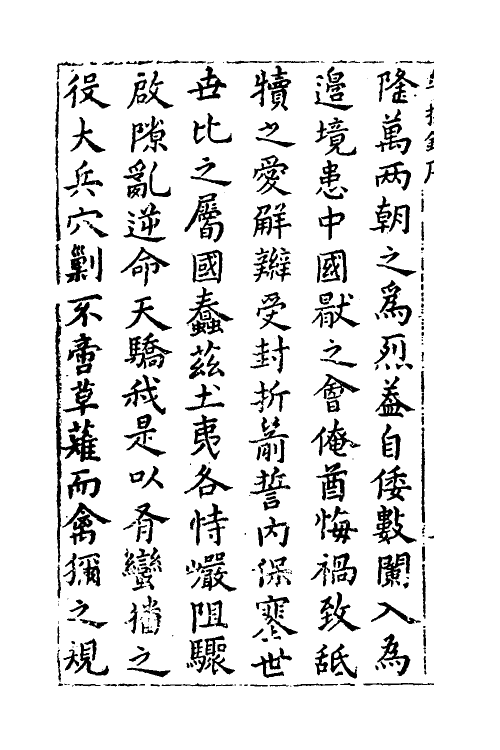 隆萬两朝之爲烈葢自倭數闌入為
邊境患中國厭之會俺酋悔禍致舐
犢之愛解辮受封折箭誓内保塞世
世比之屬國蠢茲土夷各恃巖阻驟
啟隙亂逆命天驕我是以有蠻播之
役大兵穴剿不啻草薙而禽獮之規